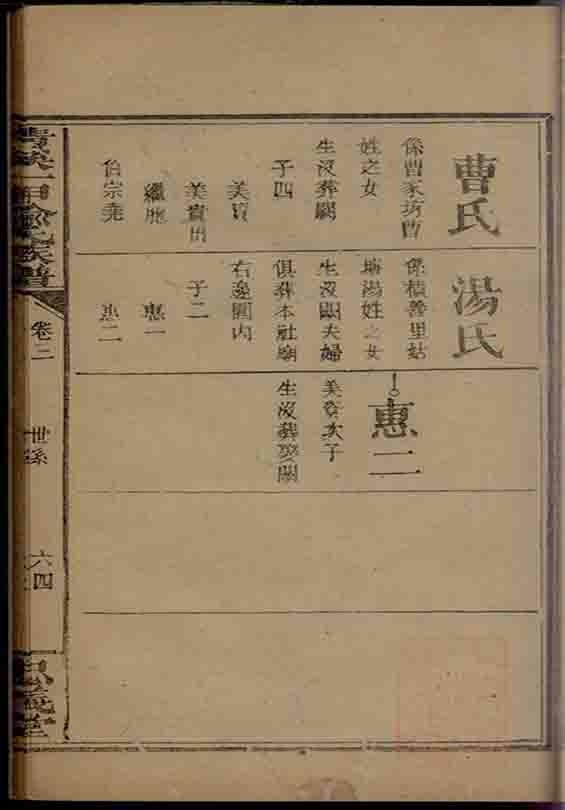 曹氏
係曹家坊曹
姓之女
生沒葬闕
子四
美寶
美貴出
繼應
伯宗堯
湯氏
係積善里姑
塘湯姓之女
生沒闕夫婦
俱葬本社廟
右邊園內
子二
惠一
惠二
惠二
美貴次子
生沒葬娶闕
氏族譜
卷三
世系
六四
堂